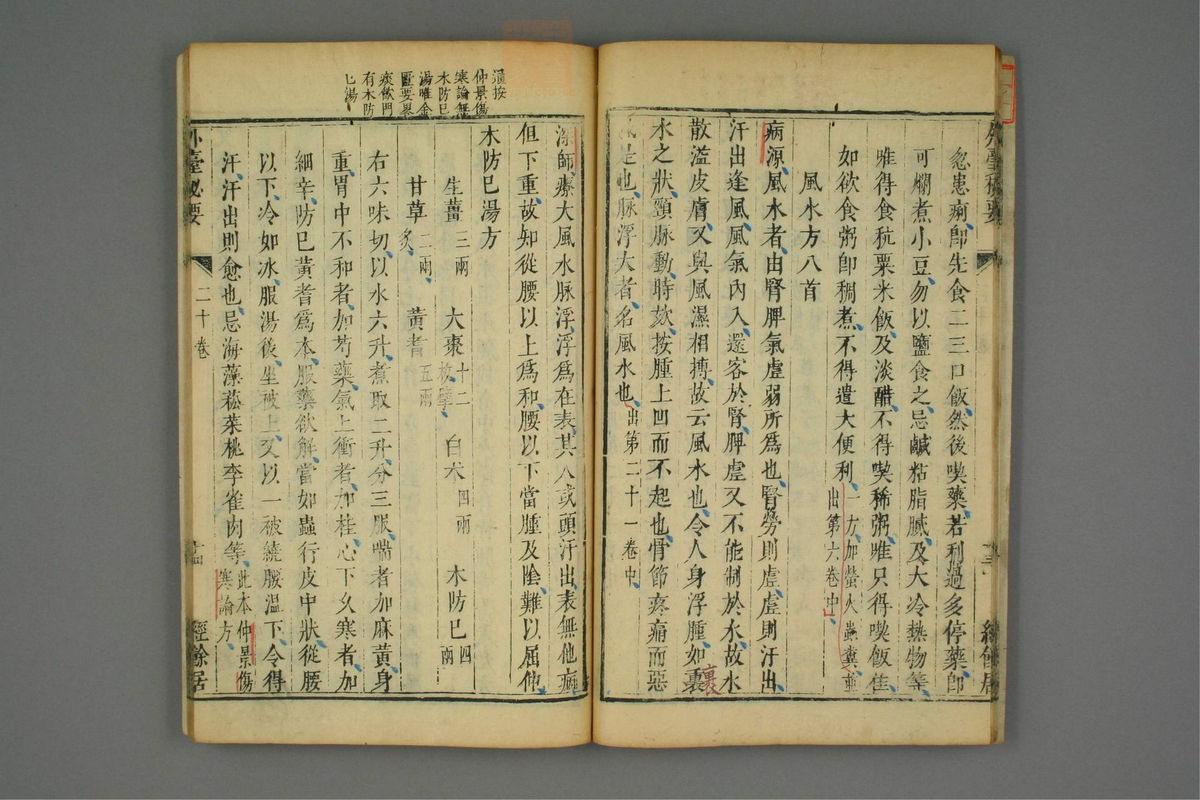 忽患痢卽先食二三口飯然後喫藥若利過多停藥卽
可爛煮小豆勿以鹽食之忌鹹粘脂膩及大冷熱物等
唯得食秔粟米飯及淡醋不得喫稀粥唯只得喫飯佳
如欲食粥卽稠煮不得遣大便利一方加螢火蟲糞並
出第六卷中
風水方八首
病源風水者由腎脾氣虛弱所爲也腎勞則虛虛則汗出
汗出逢風風氣內入還客於腎脾虛又不能制於水故水
散溢皮膚又與風濕相搏故云風水也令人身浮腫如裏
裹
水之狀頸脉動時欬按腫上凹而不起也骨節疼痛而惡
是也脉浮大者名風水也出第二十一卷中
外臺秘要
經餘居
深師療大風水脉浮浮爲在表其人或頭汗出表無他病
但下重故知從腰以上爲和腰以下當腫及陰難以屈伸
木防巳湯方
生薑三兩 大棗十二枚擘 白术四兩 木防巳四兩
甘草二兩炙 黃耆五兩
右六味切以水六升煮取二升分三服喘者加麻黃身
重胃中不和者加芍藥氣上衝者加桂心下久寒者加
細辛防巳黃耆爲本服藥欲解當如蟲行皮中狀從腰
以下冷如冰服湯後坐被上又以一被繞腰溫下令得
汗汗出則愈也忌海藻菘菜桃李雀肉等此本仲景傷
寒論方
外臺秘要
二十卷
十四
經餘居
仲景傷
寒論無
木防巳
湯唯金
匱要畧
痰飲門
有木防
巳湯